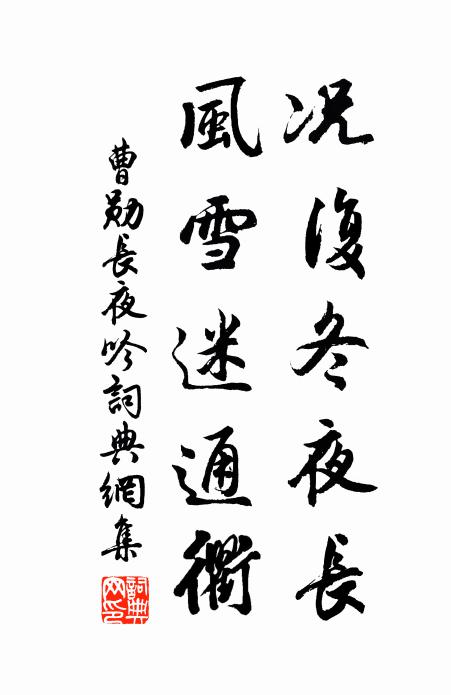 况復冬夜長
風雪迷通衢
曹勛長夜吟詞典網集
詞典網印